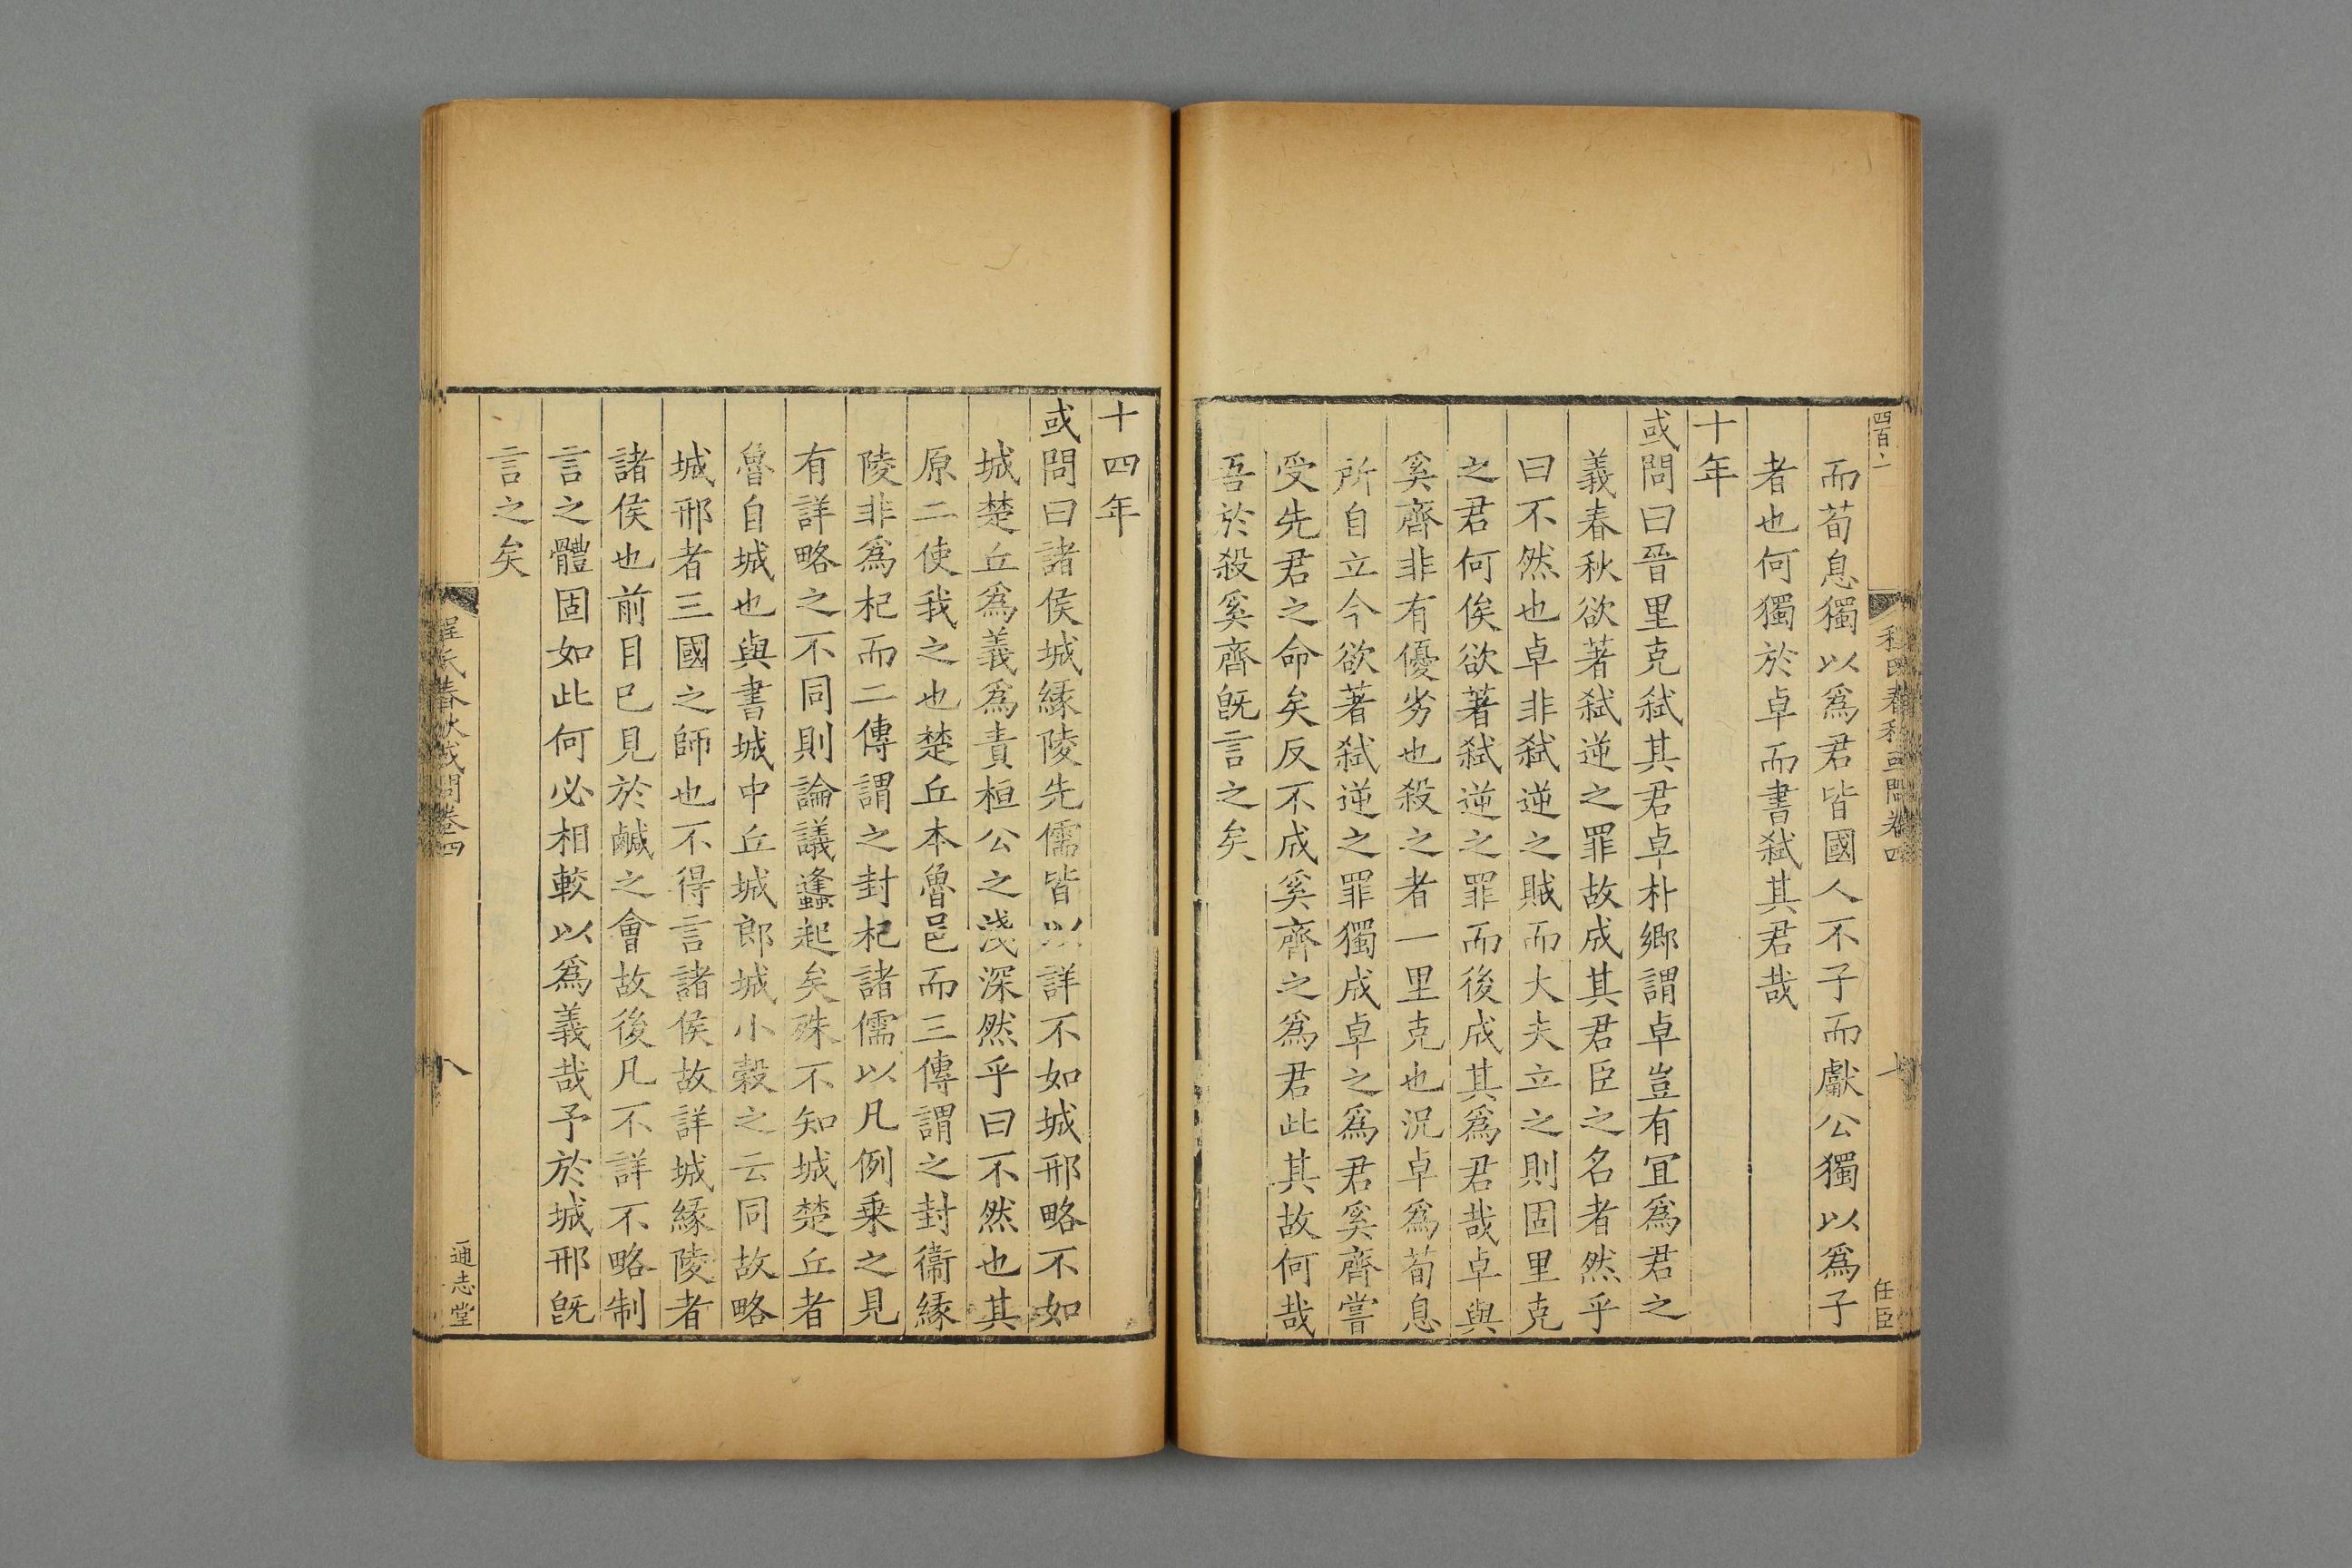 而荀息獨以爲君皆國人不子而獻公獨以爲子
者也何獨於卓而書弑其君哉
十年
或問曰晉里克弑其君卓朴鄉謂卓豈有冝爲君之
義春秋欲著弑逆之罪故成其君臣之名者然乎
曰不然也卓非弑逆之賊而大夫立之則固里克
之君何俟欲著弑逆之罪而後成其爲君哉卓與
奚齊非有優劣也殺之者一里克也況卓爲荀息
所自立今欲著弑逆之罪獨成卓之爲君奚齊嘗
受先君之命矣反不成奚齊之爲君此其故何哉
吾於殺奚齊旣言之矣
任臣
十四年
或問曰諸侯城緣陵先儒皆以詳不如城邢略不如
城楚丘爲義爲責桓公之淺深然乎曰不然也其
原二使我之也楚丘本魯邑而三傳謂之封衞緣
陵非爲杞而二傳謂之封杞諸儒以凡例乗之見
有詳略之不同則論議蠭起矣殊不知城楚丘者
魯自城也與書城中丘城郎城小穀之云同故略
城邢者三國之師也不得言諸侯故詳城緣陵者
諸侯也前目已見於鹹之會故後凡不詳不略制
言之體固如此何必相較以爲義哉予於城邢旣
言之矣
程氏春秋或問卷四
八
通志堂